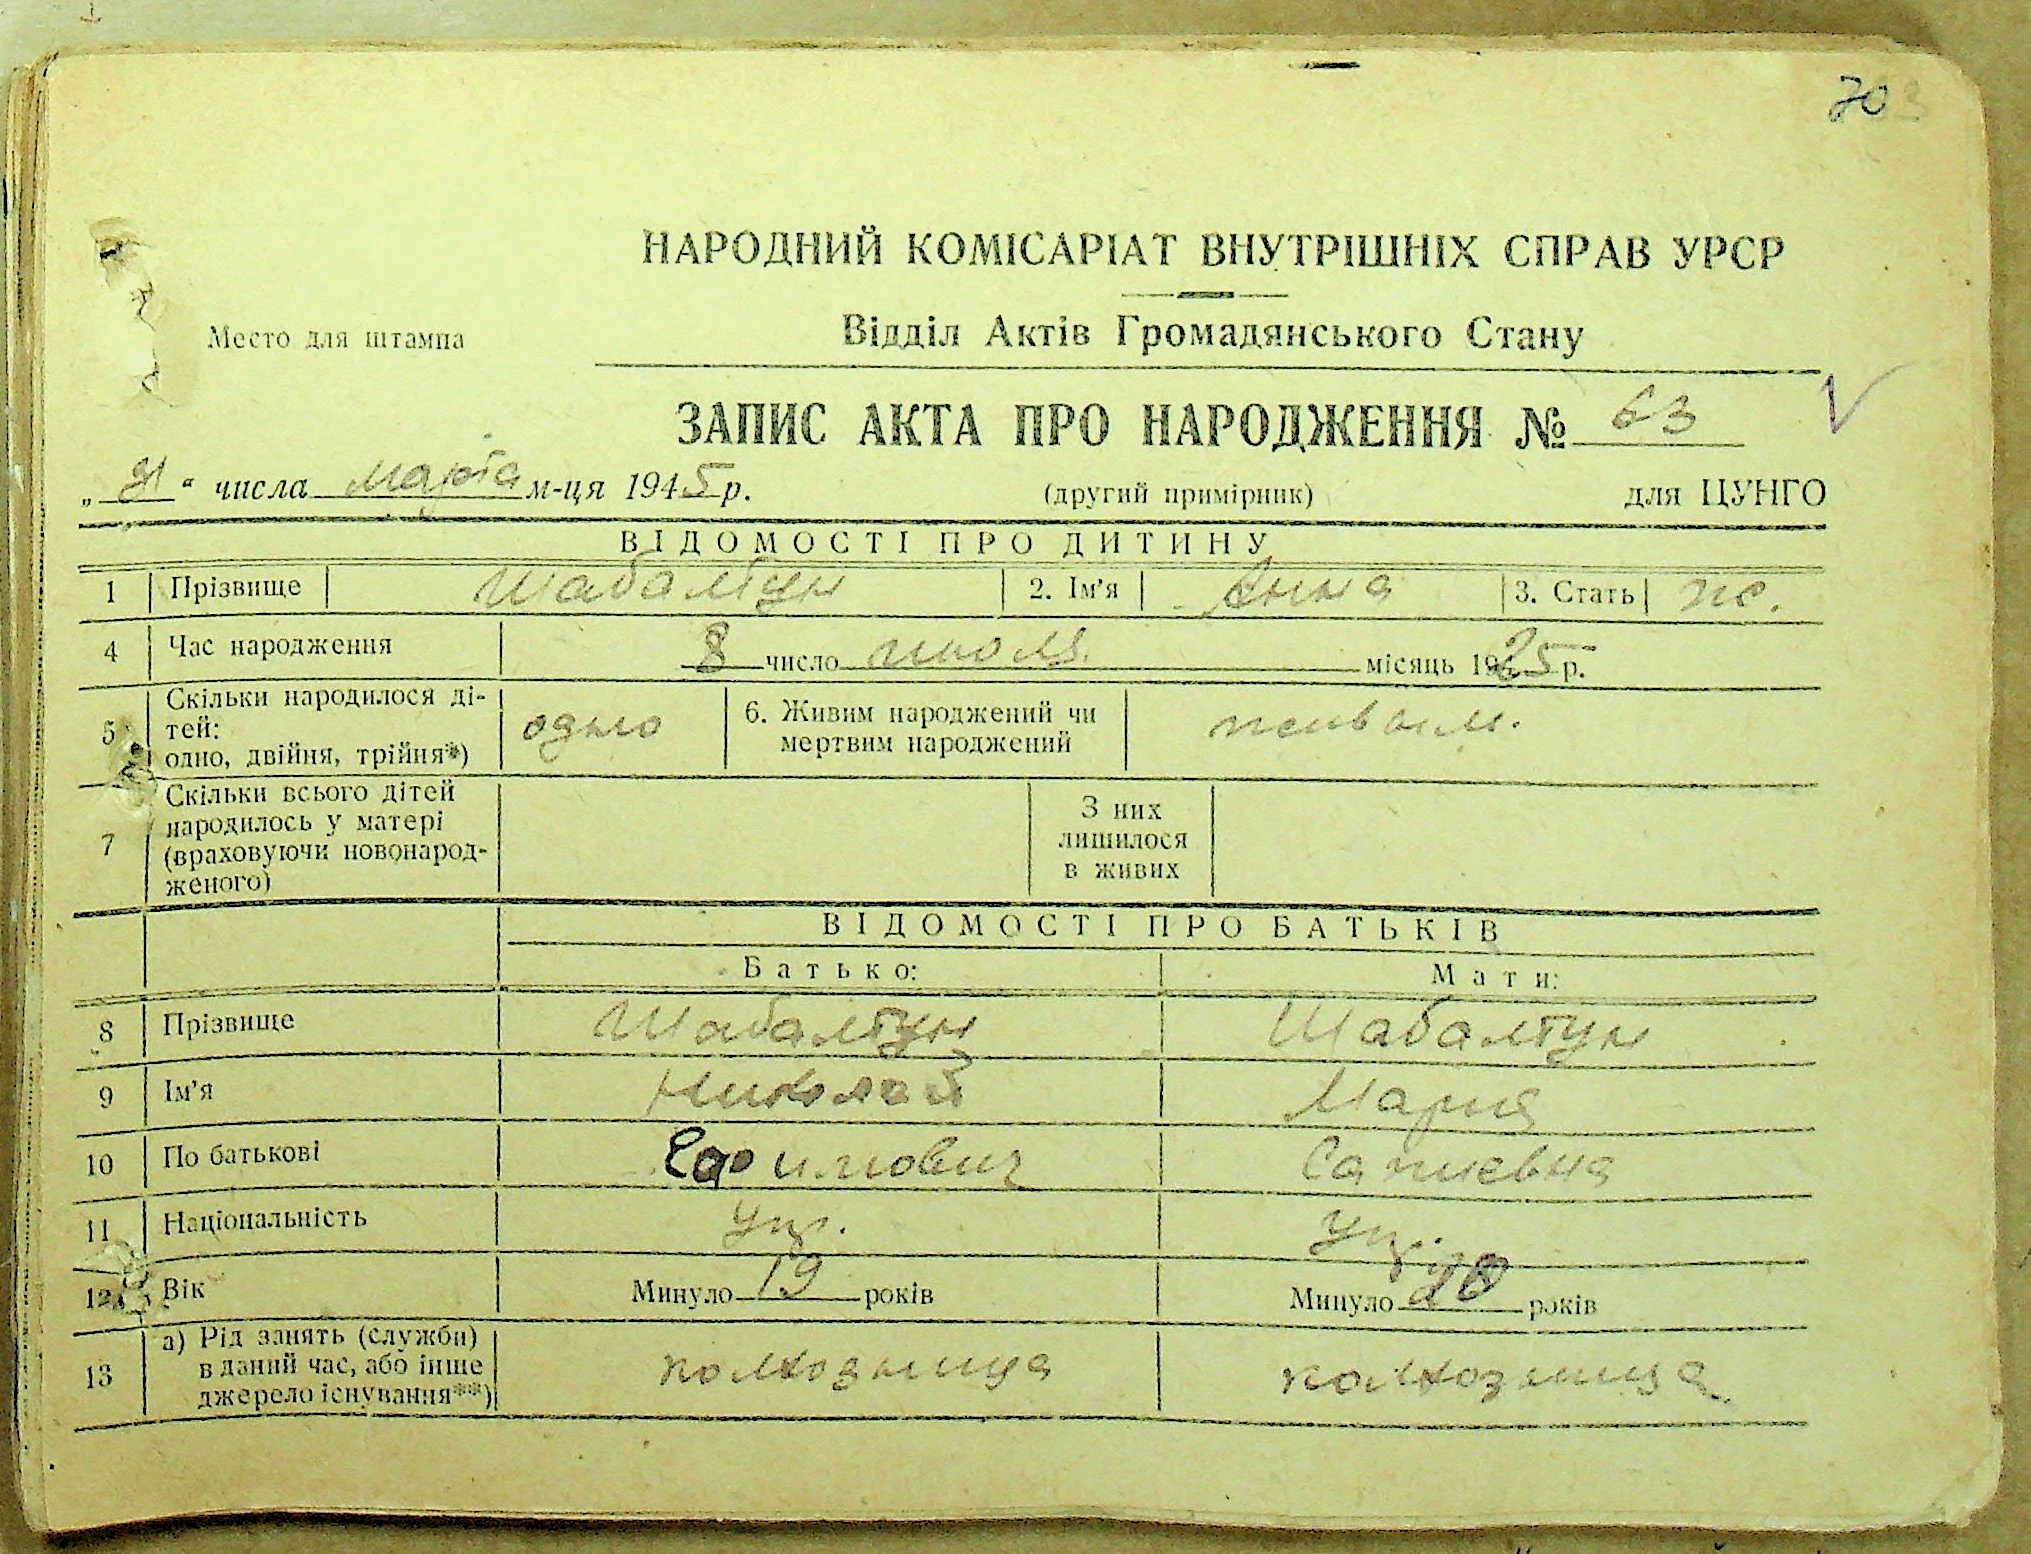 70
НАРОДНИЙ КОМІСАРІАТ ВНУТРІШНІХ СПРАВ УРСР
Место для штампа
Відділ Актів Громадянського Стану
ЗАПИС АКТА ПРО НАРОДЖЕННЯ № 63
„ 31 “ числа марта м-ця 1945 р. (другий примірник) для ЦУНГО
ВІДОМОСТІ ПРО ДИТИНУ
1 Прізвище Шабалтун 2. Ім'я Анна 3. Стать ж.
4 Час народження 8 число июля місяць 1925 р.
5 Скільки народилося ді-
тей:
одно, двійня, трійня*) одно 6. Живим народжений чи
мертвим народжений живым.
7 Скільки всього дітей
народилось у матері
(враховуючи новонарод-
женого)
З них
лишилося
в живих
ВІДОМОСТІ ПРО БАТЬКІВ
Батько: Мати:
8 Прізвище Шабалтун Шабалтун
9 Ім'я Николай Мария
10 По батькові Ефимович
11 Національність укр. укр.
12 Вік Минуло 19 років Минуло 20 років
13 а) Рід занять (служби)
в даний час, або інше
джерело існування**) колхозница колхозница